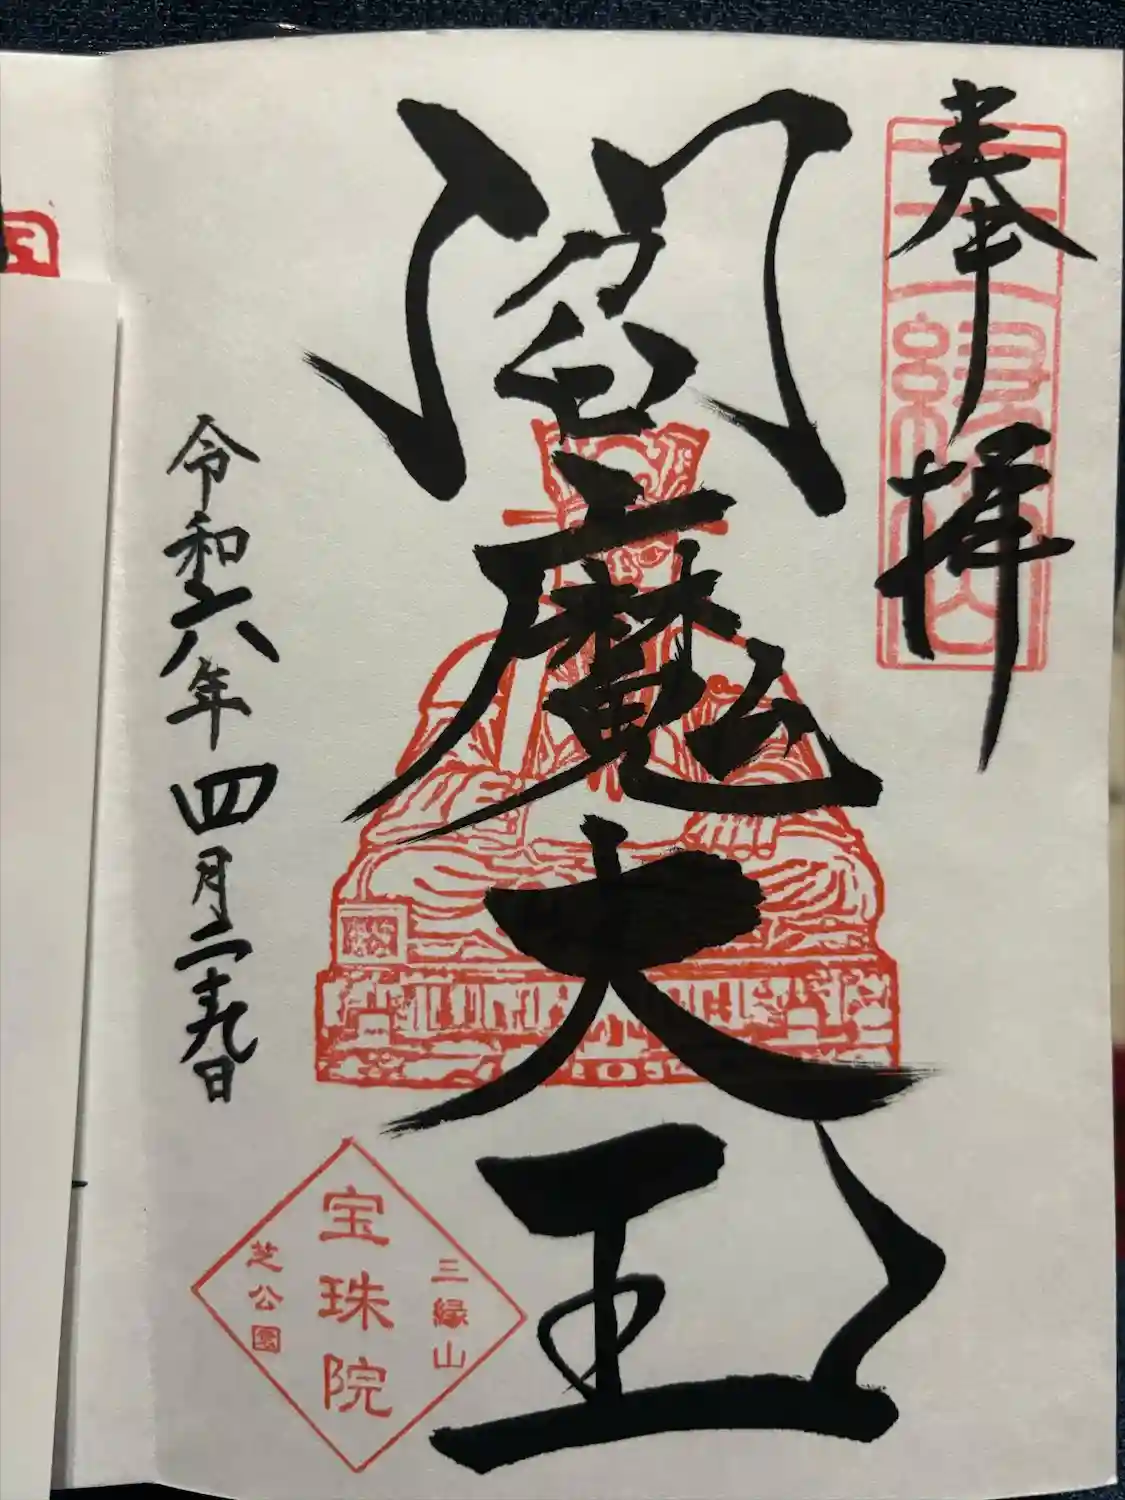 奉拝
三縁山
閻魔大王
令和六年四月二十九日
三縁山
宝珠院
芝公園